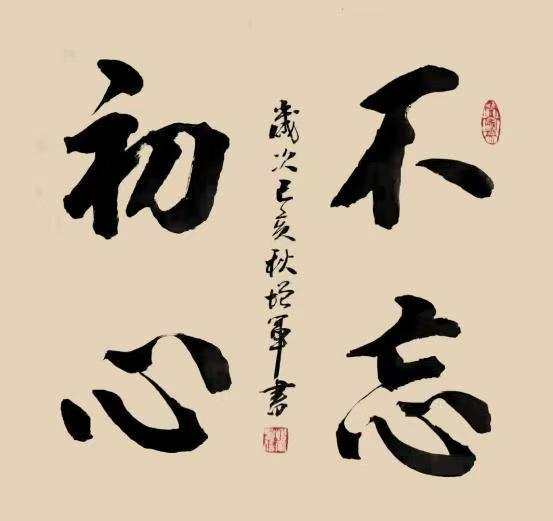 不忘
初心
歲次己亥秋增軍書